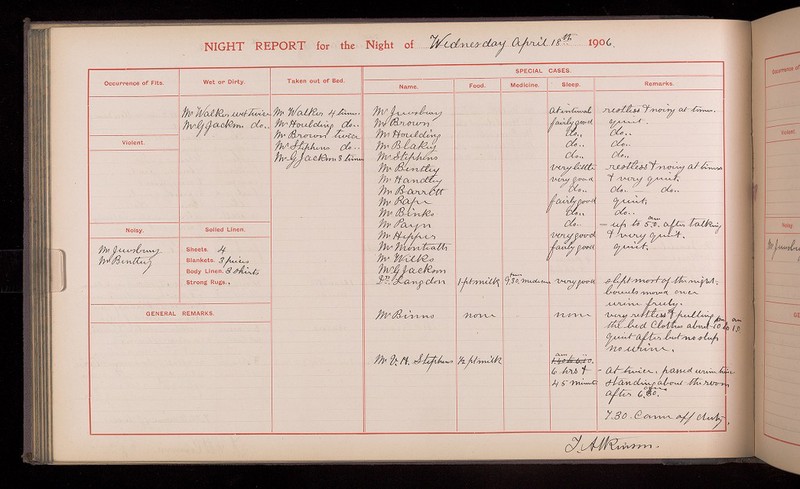 NIGHT REPORT for the Night of Wednesday April 18th 1906.
SPECIAL CASES.
Occurrence of Fits. Wet or Dirty. Taken out of Bed. Name. Food. Medicine. Sleep. Remarks.
Mr Walker wet twice Mr Walker 4 times. Mr Jewsbury At intervals restless & noisy at times.
Mr G Jackson do.. Mr Houlding do.. Mr Brown fairly good quiet.
Violent. Mr Brown twice Mr Houlding do.. do..
Mr Stephens do.. Mr Blakey do.. do..
Mr G Jackson 3 times Mr Stephens do.. do..
Mr Bentley very little restless & noisy at times
Mr Handley very good & very quiet.
Mr Barrett do.. do.. do..
Mr Raper fairly good quiet.
Mr Binks do.. do..
Mr Payn do.. up to 5 am after talking
Noisy. Soiled Linen. Mr Hipper very good & very quiet.
Mr Jewsbury Sheets. 4 fairly good quiet.
Mr Bentley Blankets. 3 pieces Mr Wilks
Body Linen. 3 shirts Mr G Jackson
Strong Rugs. Dr Langdon 1 pt milk 9.30 medicine very good slept most of the night.
bowels moved once
urine freely.
GENERAL REMARKS. Mr Binns none none very restless & pulling
the bed clothes about
quiet after but no sleep
no urine.
Mr V. M. Stephens ½ pt milk
6 hrs & at twice. passed urine twice
45 minutes standing about the room
after 6.30.
7.30. Came off duty.
J. Atkinson.